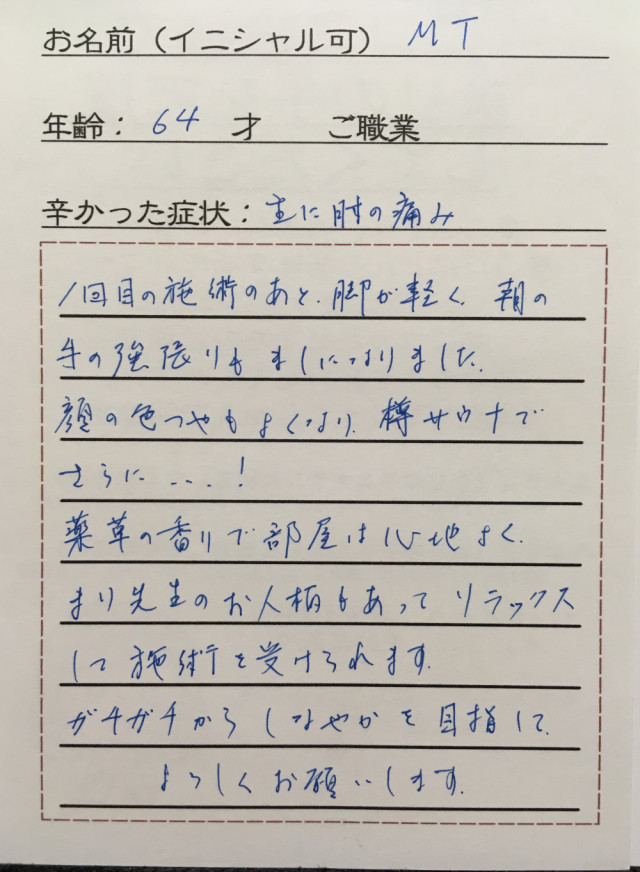 お名前（イニシャル可） MT
年齢： 64 才 ご職業
辛かった症状： 主に肘の痛み
1回目の施術のあと、脚が軽く、朝の
手の強張りもましになりました。
顔の色つやもよくなり、樽サウナで
さらに...!
薬草の香りで部屋は心地よく、
まり先生のお人柄もあってリラックス
して施術を受けられます。
ガチガチからしなやかを目指して、
よろしくお願いします。